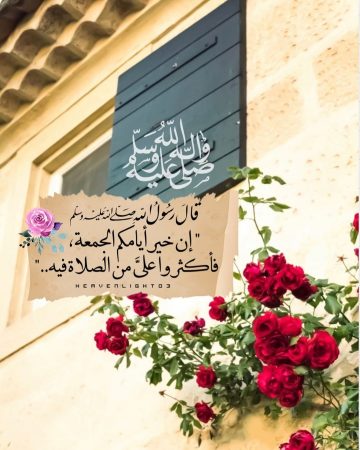 صلى الله عليه وآله وسلم
قال رسول الله صلى الله عليه وسلم
"إن خير أيامكم الجمعة،
فأكثروا عليَّ من الصلاة فيه.."
HEAVENLIGHT03